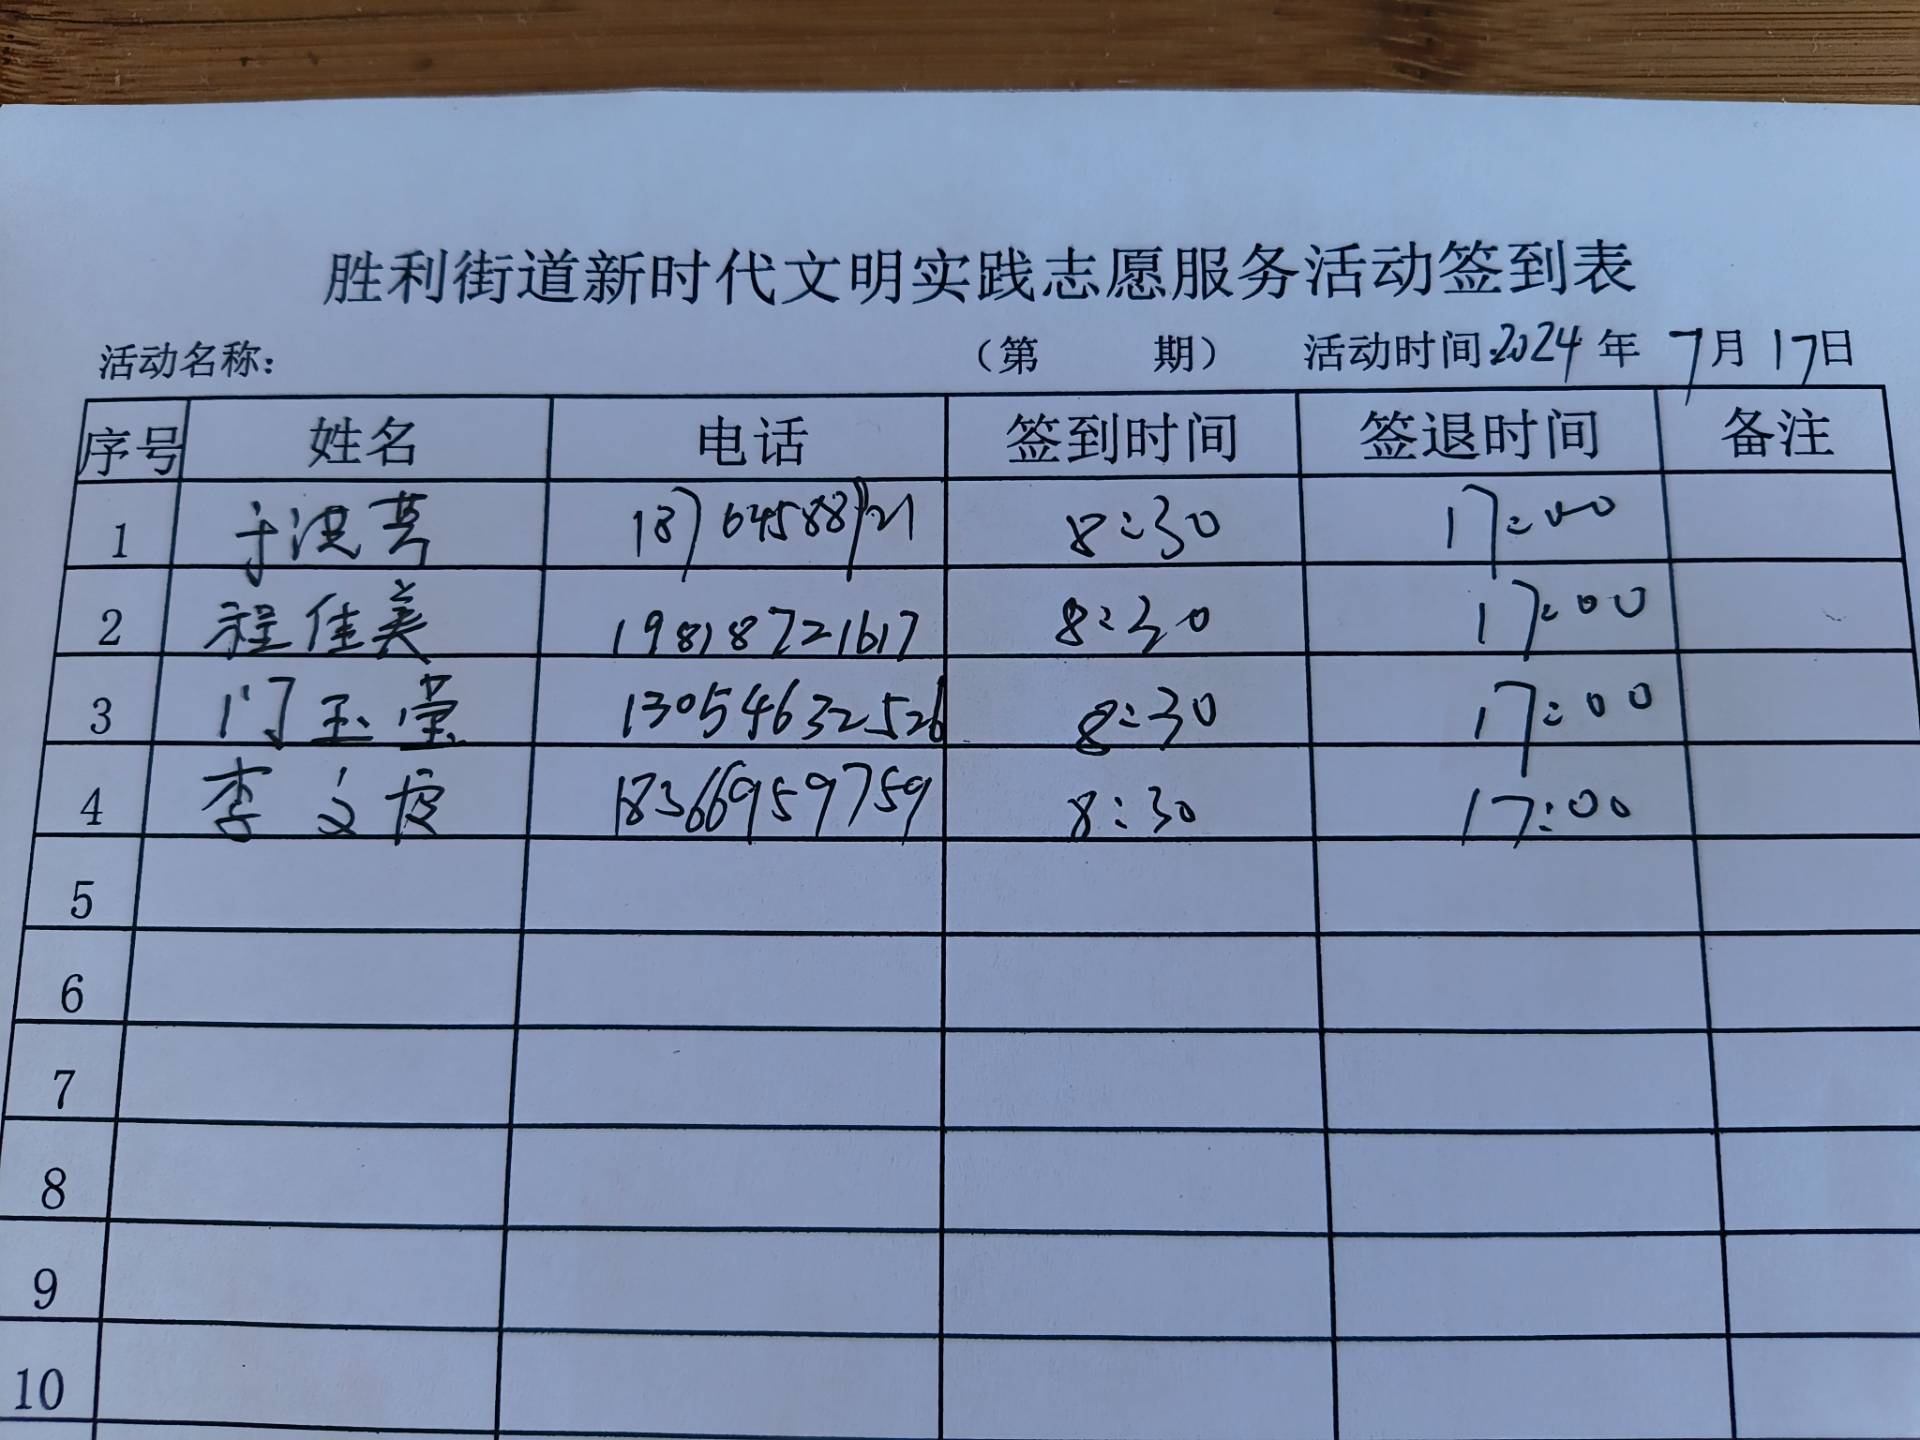 胜利街道新时代文明实践志愿服务活动签到表
活动名称： （第 期） 活动时间:2024年 7月 17日
序号 姓名 电话 签到时间 签退时间 备注
1 于洪 8:30 17:00
2 程佳美 19818721617 8:30 17:00
3 门玉莹 13054632526 8:30 17:00
4 李文 18366959759 8:30 17:00
5
6
7
8
9
10